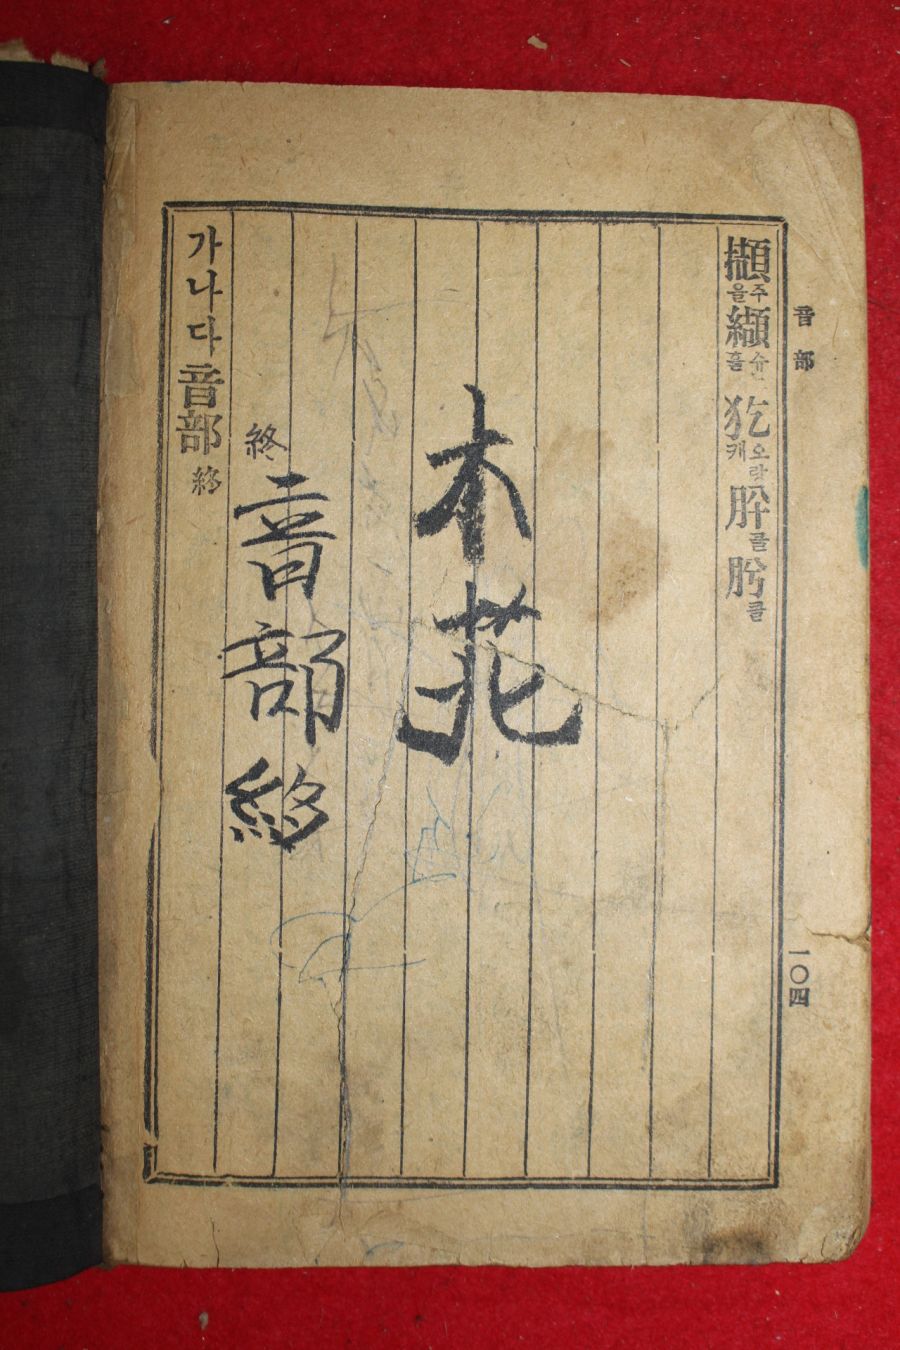 音部
一〇四
擷주을纈흘犵오랑캐肸클肹클
木花
終
音部終
가나다音部終